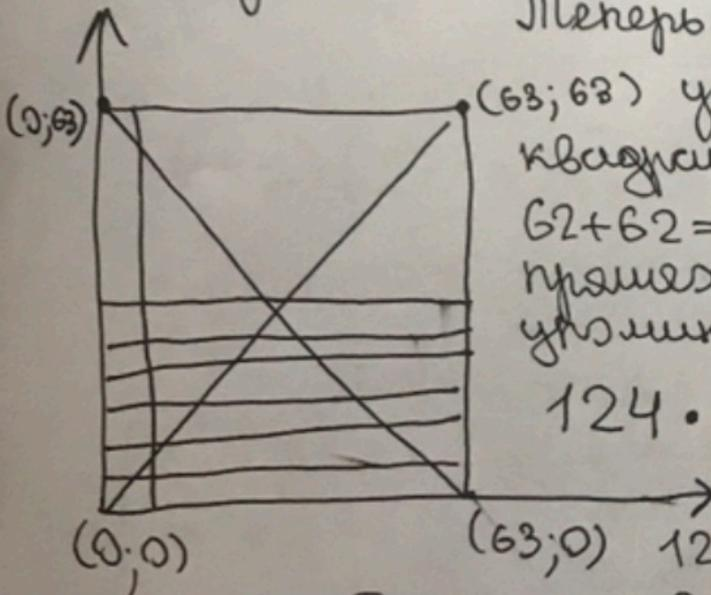 Теперь
(0;63)
(63;63) у
квадра
62+62=
прямоз
упомин
124 ·
(0;0)
(63;0) 12